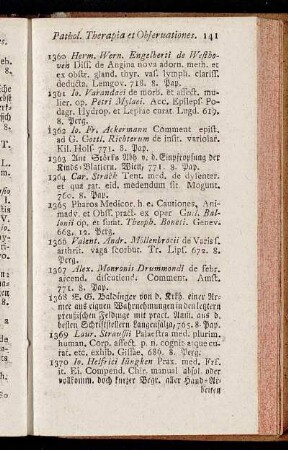 Pathol. Therapia et Observationes. 141
1360 Herm. Wern. Engelberti de Westho-
ven Diss. de Angina nova adorn. meth. et
ex obstr. gland. thyr. vas. lymph. clariss.
deducta. Lemgov. 718. 8. Pap.
1361 Io. Varandaei de morb. et affect. mu-
lier. op. Petri Mylaei. Acc. Epilepf. Po-
dagr. Hydrop. et Leprae curat. Lugd. 619.
8. Perg.
1362 Io. Fr. Ackermann Comment epist.
ad G. Gottl. Richterum de insit. variolar.
Kil. Hols. 771. 8. Pap.
1363 Ant Störks Abh v. d. Einpfropfung der
Kinds-Blattern. Wien, 771. 8. Pap.
1364 Car. Strack Tent. med. de dysenter.
et qua rat. eid. medendum sit Mogunt.
760. 8. Pap.
1365 Pharos Medicor. h e. Cautiones, Ani-
madv. et Obss. pract. ex oper Guil. Bal-
lonii op. et summt. Theoph. Boneti. Genev.
668. 12. Perg.
1366 Valent. Andr. Möllenbrocii de Varis s.
arthrit. vaga scorbut. Tr. Lips. 672. 8.
Perg.
1367 Alex. Monronis Drummondi de febr.
arcend. discutiend. Comment. Amst.
771. 8. Pap.
1368 E. G. Baldinger von d. Krkh. einer Ar-
mee aus eignen Wahrnehmungen in den letztern
preußischen Feldzuge mit pract. Anm. aus d.
besten Schriftstellern Langensalza, 765. 8. Pap.
1369 Laur. Straussii Palaestra med. partium
human. Corp. affect. p. n. cognit. atque cu-
rat. etc. exhib. Gissae, 686. 8. Perg.
1370 Io. Helfrici Iüngken Prax. med. Frf.
it. Ei. Compend. Chir. manual absol. oder
vollkomm. doch kurzer Begr. aller Hand-Ar-
beiten